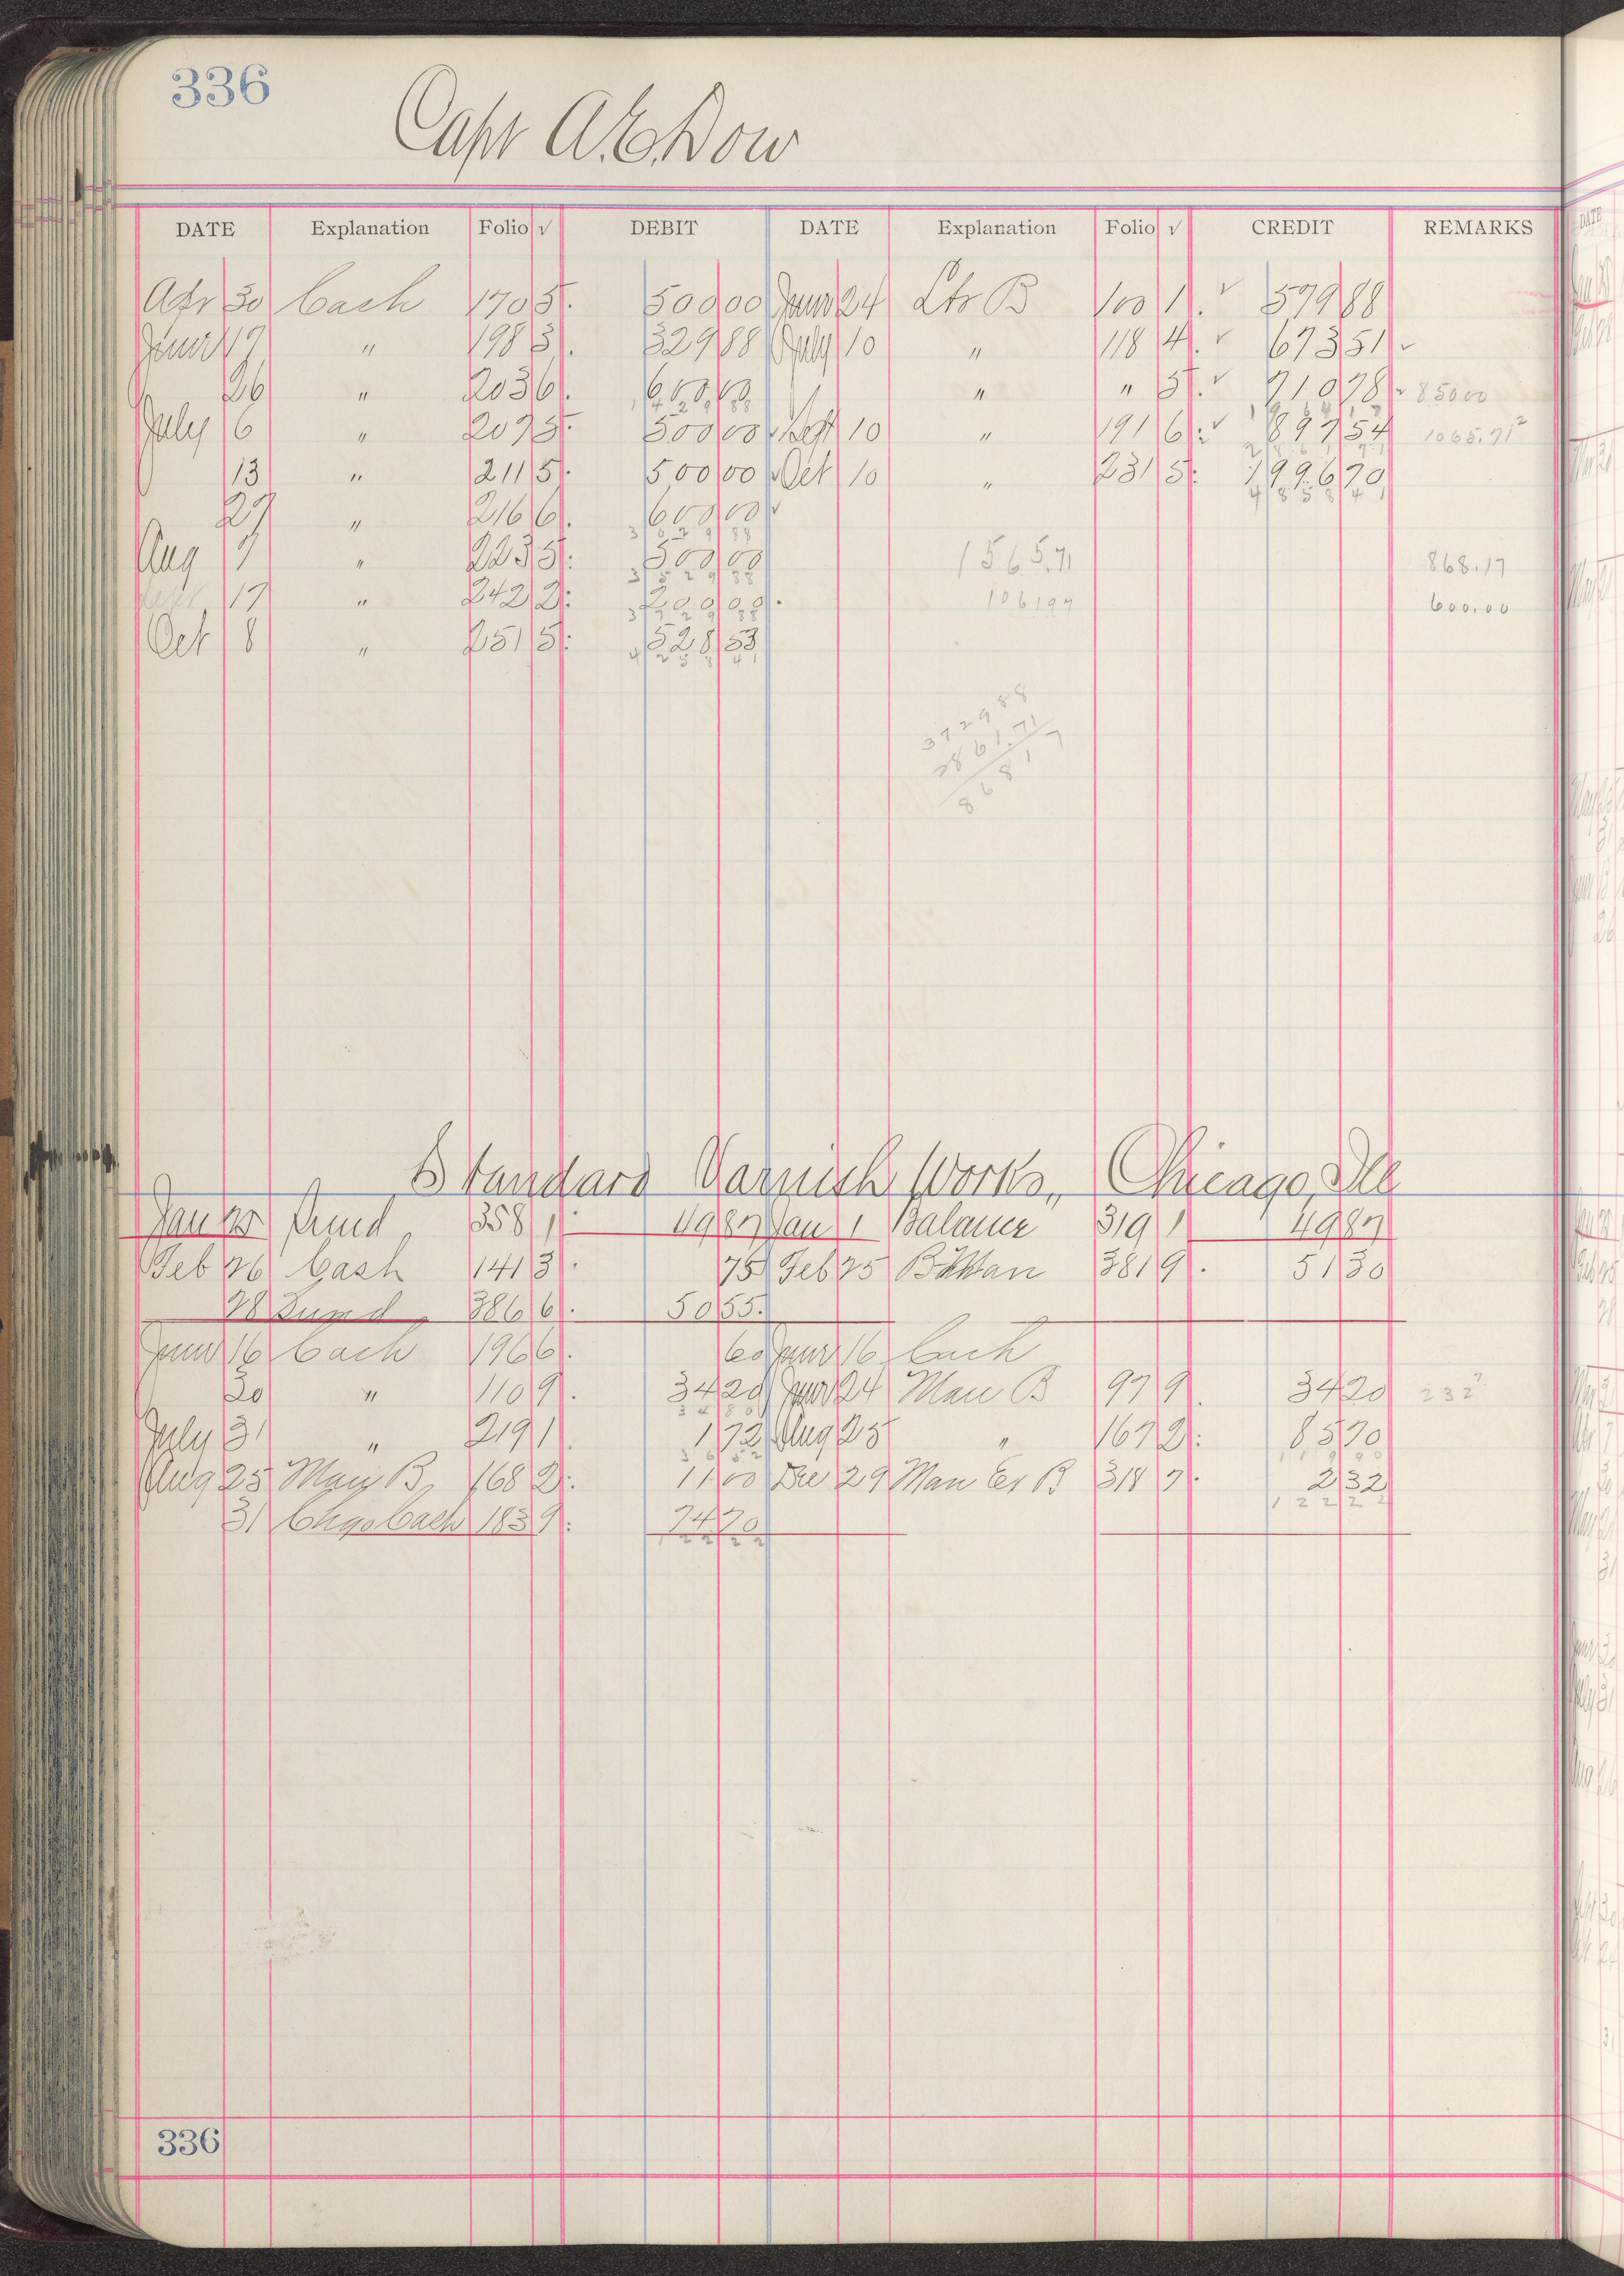 336
Capt A. E. Dow
DATE Explanation Folio √ DEBIT DATE Explanation Folio √ CREDIT REMARKS
Apr 30 Cash 170 5. 500 00 June 24 Ltr B 100 1. √ 579 88
June 17 " 198 3. 329 88 July 10 " 118 4. √ 673 51
26 " 203 6. 600 00 " " 5. √ 710 78 850 00
1429 88
July 6 " 207 5. 500 00 Sept 10 " 191 6. √ 897 54 1065.71
2861 71
13 " 211 5. 500 00 Oct 10 " 231 5. 1996 70
4858 41
27 " 216 6. 600 00
3029 88
Aug 7 " 223 5. 500 00 1565.71 868.17
3529 88
Sept 17 " 242 2. 200 00 1061 97 600.00
3729 88
Oct 8 " 251 5. 528 53
4258 41
3729 88
2861.71
868 17
Standard Varnish Works, Chicago, Ill
Jan 25 Fund 358 1 49 87 Jan 1 Balance 319 1 49 87
Feb 26 Cash 141 3. 75 Feb 25 381 9. 51 30
28 Fund 386 6. 50 55
June 16 Cash 196 6. 60 June 16 Cash
20 " 110 9. 34 20 June 24 Man B 97 9. 34 20 232
34 80
July 31 " 219 1. 1 72 Aug 25 " 167 2. 85 70
36 52
Aug 25 Man B 168 2. 11 00 Dec 29 Man Es B 318 7. 2 32
122 22
31 Chgo Cash 183 9. 74 70
122 22
336